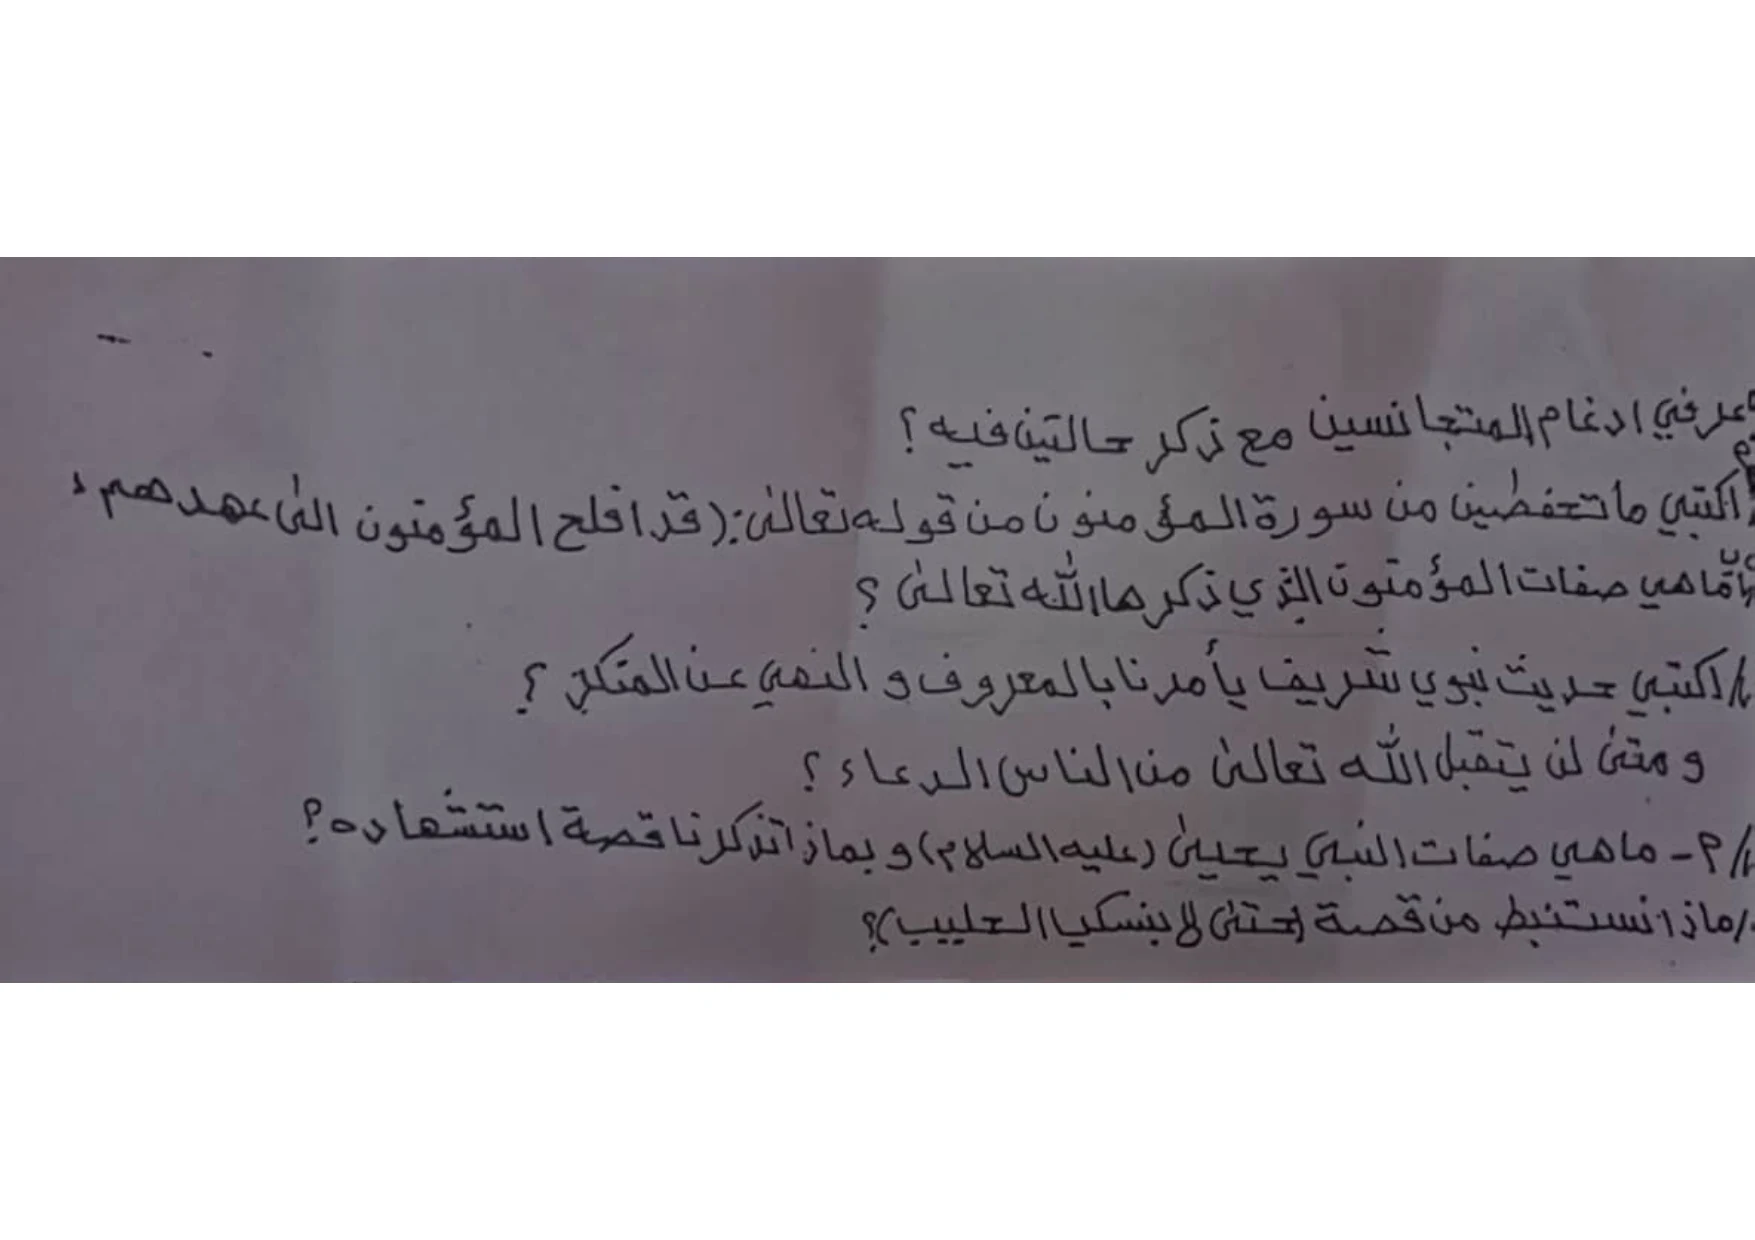 عرفي ادغام المتجانسين مع ذكر حالتين فيه ؟
اكتبي ما تحفظين من سورة المؤمنون من قوله تعالى : ( قد افلح المؤمنون الى عهدهم
ما هي صفات المؤمنون الذي ذكرها الله تعالى ؟
اكتبي حديث نبوي شريف يأمرنا بالمعروف و النهي عن المنكر ؟
و متى لن يتقبل الله تعالى من الناس الدعاء ؟
م - ما هي صفات النبي يحيى (عليه السلام) و بماذا تذكرنا قصة استشهاده ؟
ماذا نستنبط من قصة (حتى لا ينسكب الحليب) ؟